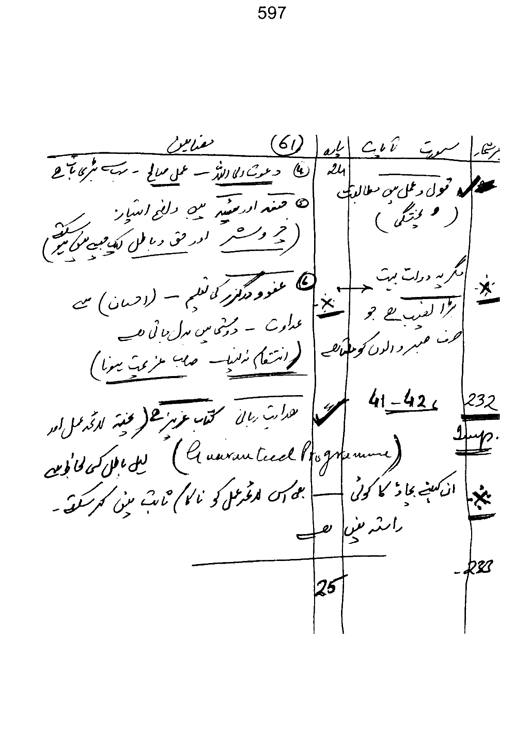 597
نمبر شمار سورت آیات پارہ (61) مضامین
24 (4) دعوت الی اللہ – عمل صالح – سب سے بڑی بات ہے
قول و عمل میں مطابقت
(و پختگی) (5) حسنہ اور سیئہ میں واضح امتیاز:
(خیر و شر اور حق و باطل ایک جیسے نہیں ہو سکتے)
مگر یہ دولت بہت (6) عفو و درگزر کی تعلیم – (احسان) سے
بڑا نصیب ہے جو عداوت – دوستی میں بدل جاتی ہے
صرف صبر والوں کو ملتا ہے (انتقام نہ لینا – صاحب عزیمت ہونا)
232 41–42، ہدایت ربانی کتاب عزیز ہے (پختہ لائحہ عمل اور
Imp. (Guaranteed Programme)
ان کیلئے بچاؤ کا کوئی — بھی اس لائحہ عمل کو ناکام ثابت نہیں کر سکتے –
راستہ نہیں ہے
233
25